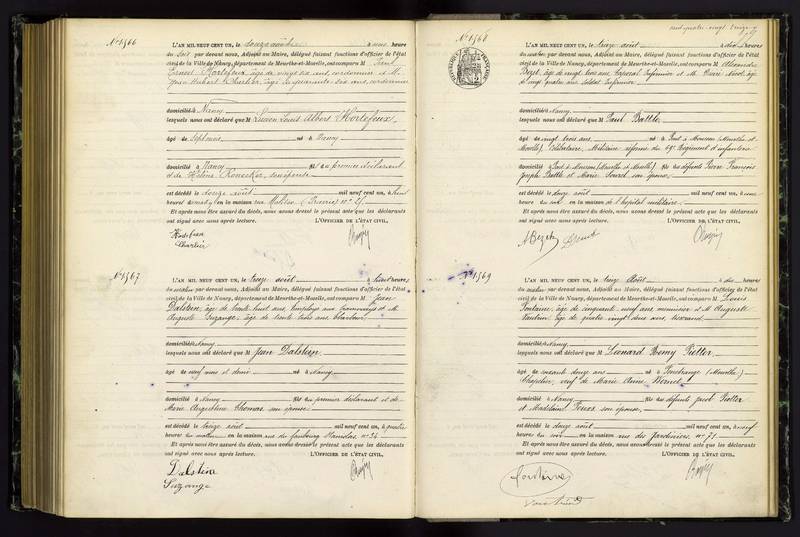 N° 1566
L'AN MIL NEUF CENT UN, le douze août à onze heures
du soir par devant nous, Adjoint au Maire, délégué faisant fonctions d'officier de l'état
civil de la Ville de Nancy, département de Meurthe-et-Moselle, ont comparu M Paul
Ernest Hortefeux âgé de vingt six ans, cordonnier et M.
Hubert Charlier, âgé de quarante-six ans, cordonnier
domiciliés à Nancy
lesquels nous ont déclaré que M Lucien Louis Albert Hortefeux,
âgé de né à Nancy
domicilié à Nancy fils du premier déclarant
et de Hélène son épouse
est décédé le douze août mil neuf cent un, à huit
heures en sa maison rue n° 25.
Et après nous être assuré du décès, nous avons dressé le présent acte que les déclarants
ont signé avec nous après lecture. L'OFFICIER DE L'ÉTAT CIVIL,
Hortefeux
Charlier
N° 1567
L'AN MIL NEUF CENT UN, le treize août à huit heures
du matin par devant nous, Adjoint au Maire, délégué faisant fonctions d'officier de l'état
civil de la Ville de Nancy, département de Meurthe-et-Moselle, ont comparu M Jean
Dalstein, âgé de trente huit ans, employé aux tramways et M.
Auguste Suzange, âgé de trente trois ans,
domiciliés à Nancy
lesquels nous ont déclaré que M Jean Dalstein,
âgé de neuf mois et demi né à Nancy
domicilié à Nancy fils du premier déclarant et de
Marie Augustine Thomas son épouse
est décédé le treize août mil neuf cent un, à quatre
heures du matin en sa maison rue du faubourg Stanislas, n° 34
Et après nous être assuré du décès, nous avons dressé le présent acte que les déclarants
ont signé avec nous après lecture. L'OFFICIER DE L'ÉTAT CIVIL,
Dalstein
Suzange
N° 1568
L'AN MIL NEUF CENT UN, le treize août à dix heures
du matin par devant nous, Adjoint au Maire, délégué faisant fonctions d'officier de l'état
civil de la Ville de Nancy, département de Meurthe-et-Moselle, ont comparu M Alexandre
Bezet, âgé de vingt trois ans Caporal Infirmier et M. Pierre âgé
de vingt quatre ans Soldat Infirmier
domiciliés à Nancy
lesquels nous ont déclaré que M Paul Battle
âgé de vingt trois ans né à Pont à Mousson (Meurthe et
Moselle), Célibataire, Militaire réformé du 69e Régiment d'infanterie
domicilié à Pont à Mousson (Meurthe et Moselle) fils des défunts Pierre François
Joseph Battle et Marie son épouse,
est décédé le douze août mil neuf cent un, à onze
heures du soir en la maison de l'hôpital militaire.
Et après nous être assuré du décès, nous avons dressé le présent acte que les déclarants
ont signé avec nous après lecture. L'OFFICIER DE L'ÉTAT CIVIL,
A Bezet
N° 1569
L'AN MIL NEUF CENT UN, le treize Août à dix heures
du matin par devant nous, Adjoint au Maire, délégué faisant fonctions d'officier de l'état
civil de la Ville de Nancy, département de Meurthe-et-Moselle, ont comparu M Louis
Fontaine, âgé de cinquante neuf ans, menuisier et M Auguste
Vautrin âgé de quatre vingt deux ans, tisserand
domiciliés à Nancy
lesquels nous ont déclaré que M Léonard Rémy Pietter
âgé de soixante douze ans né à Fénétrange (Meurthe)
Chapelier, veuf de Marie Anne Wernet
domicilié à Nancy fils des défunts Jacob Pietter
et Madeleine son épouse,
est décédé le douze août mil neuf cent un, à neuf
heures du soir en sa maison rue des Jardiniers, n° 71
Et après nous être assuré du décès, nous avons dressé le présent acte que les déclarants
ont signé avec nous après lecture. L'OFFICIER DE L'ÉTAT CIVIL,
Fontaine